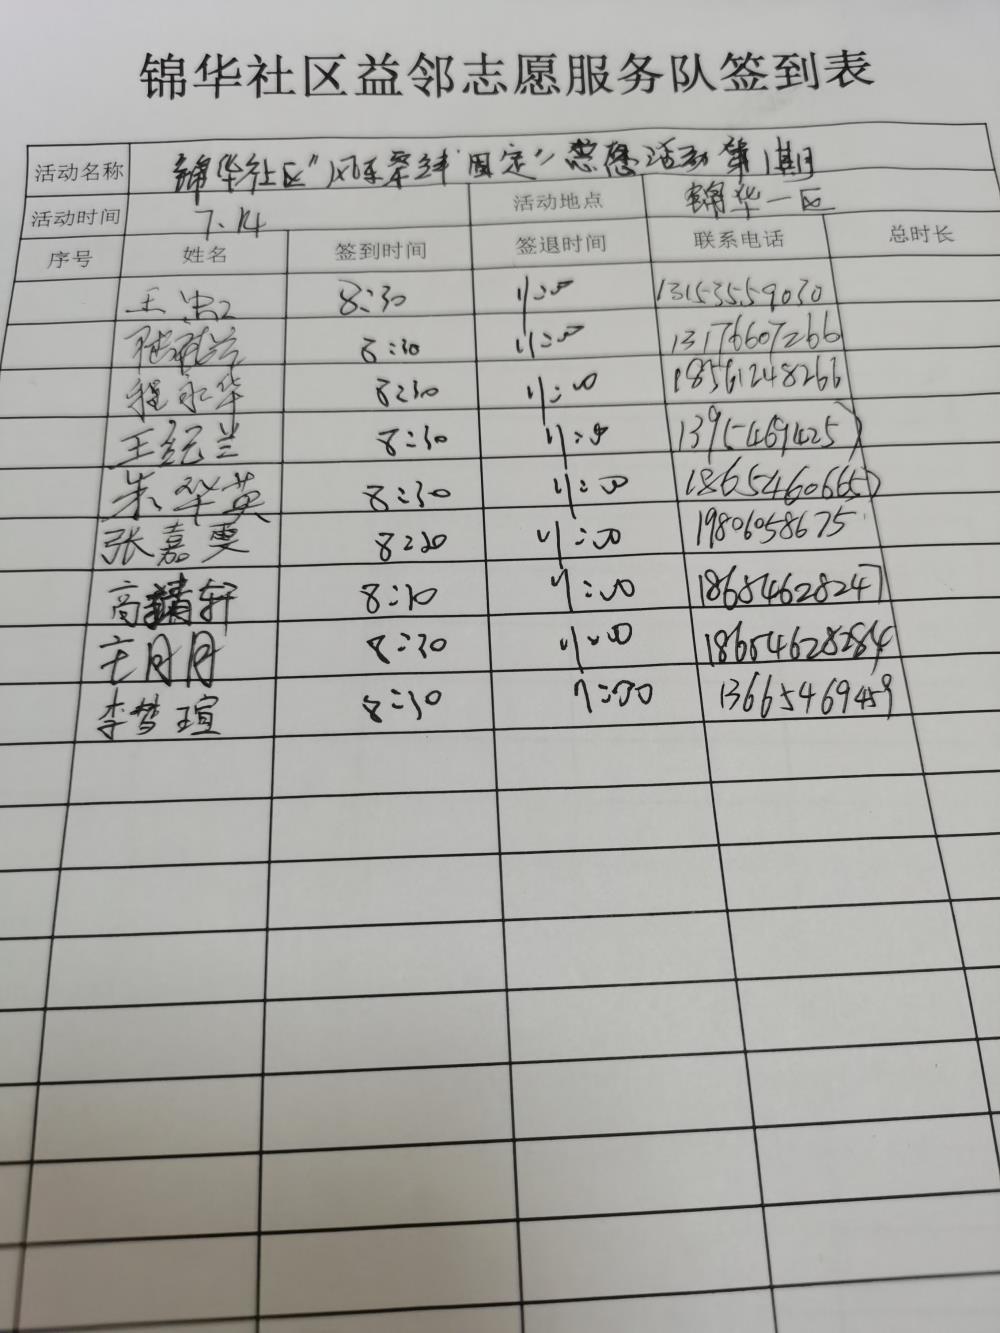 锦华社区益邻志愿服务队签到表
活动名称 锦华社区"风车牵绊 固定"公慈悲活动第1期
活动时间 7.14 活动地点 锦华一区
序号 姓名 签到时间 签退时间 联系电话 总时长
王 8:30 11:00 13153559030
8:30 11:00 13176607266
程永华 8:30 11:00 18561248266
王纪兰 8:30 11:00 13954694257
朱华英 8:30 11:00 18654606657
张嘉雯 8:30 11:00 19806058675
高精轩 8:30 11:00 18654628247
王月月 8:30 11:00 18654628284
李梦瑄 8:30 11:00 13665469459